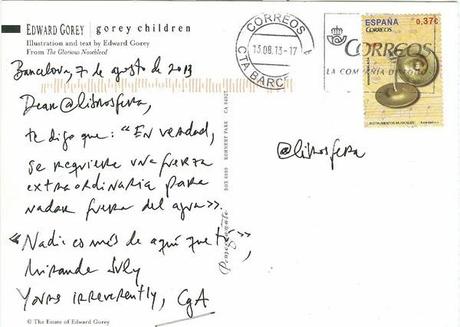 EDWARD GOREY | gorey children
Illustration and text by Edward Gorey
From The Glorious Nosebleed
Barcelona, 7 de agosto de 2013
Dear @librosfera,
te digo que: "En verdad,
se requiere una fuerza
extraordinaria para
nadar fuera del agua".
«Nadie es más de aquí que tú»,
Miranda July
Yours irreverently, CgA
© The Estate of Edward Gorey
Pomegranate
CORREOS
13 08. 13- 17
CTA BARCE
CORREOS
LA COMPAÑIA DE TODOS
ESPAÑA
0,37€
CORREOS
INSTRUMENTOS MUSICALES
@librosfera